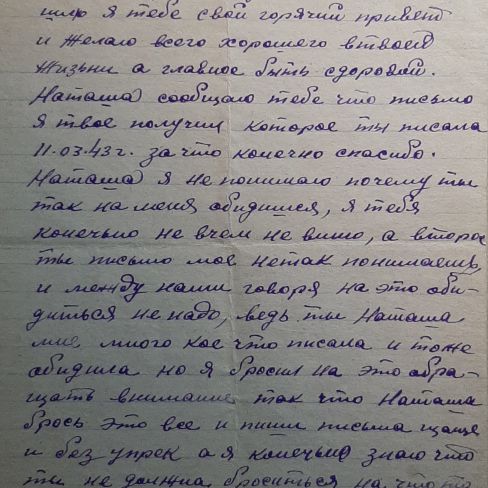 шлю я тебе свой горячий привет
и желаю всего хорошего втвоей
жизьни а главное быть сдоровой.
Наташа) сообщаю тебе что письмо
я твое получил которое ты писала
11.03.43г. за что конечно спасибо.
Наташа) я не понимаю почему ты
так на меня обидишся, я тебя
конечьно не вчем не виню, а второе
ты письмо мое нетак понимаешь,
и между нами говоря на это оби-
диться не надо, ведь ты Наташа
мне много кое что писала и тоже
обидила но я бросил на это обра-
щать внимание так что Наташа
брось это все и пиши письма чаще
и без упрек а я конечьно знаю что
ты не должна броситься на что то